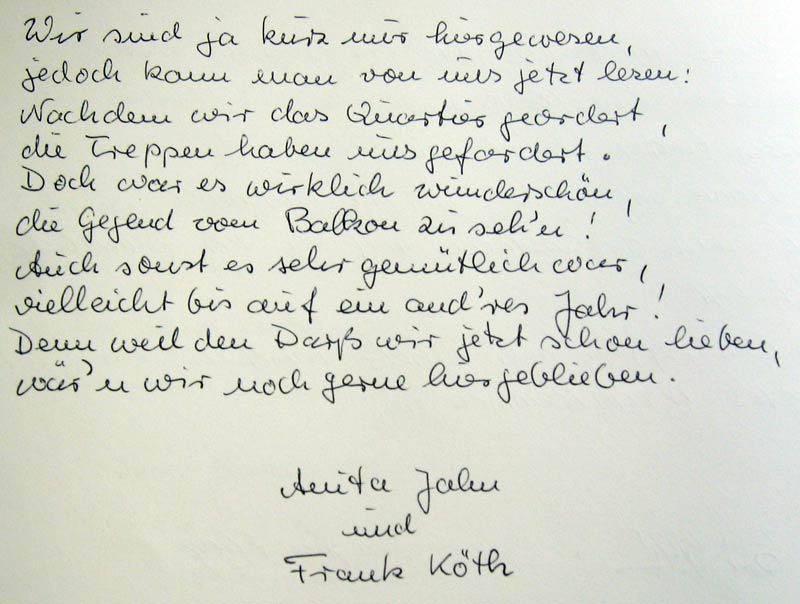 Wir sind ja kurz nur hiergewesen,
jedoch kann man von uns jetzt lesen:
Nachdem wir das Quartier geordert,
die Treppen haben uns gefordert.
Doch war es wirklich wunderschön,
die Gegend vom Balkon zu seh'n!
Auch sonst es sehr gemütlich war,
vielleicht bis auf ein and'res Jahr!
Denn weil den Darß wir jetzt schon lieben,
wär'n wir noch gerne hiergeblieben.
Anita Jahn
und
Frank Köth